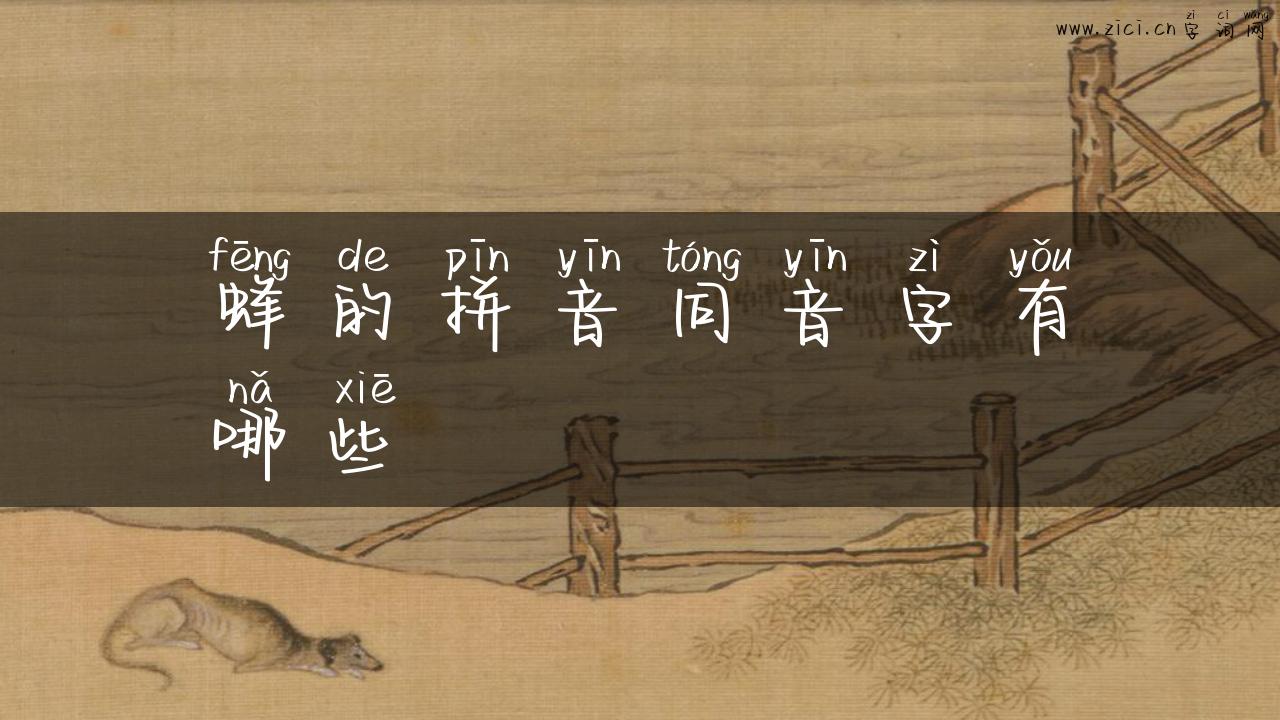 zì cì wǎng
www.zici.cn字词网
fēng de pīn yīn tóng yīn zì yǒu
蜂的拼音同音字有
nǎ xiē
哪些